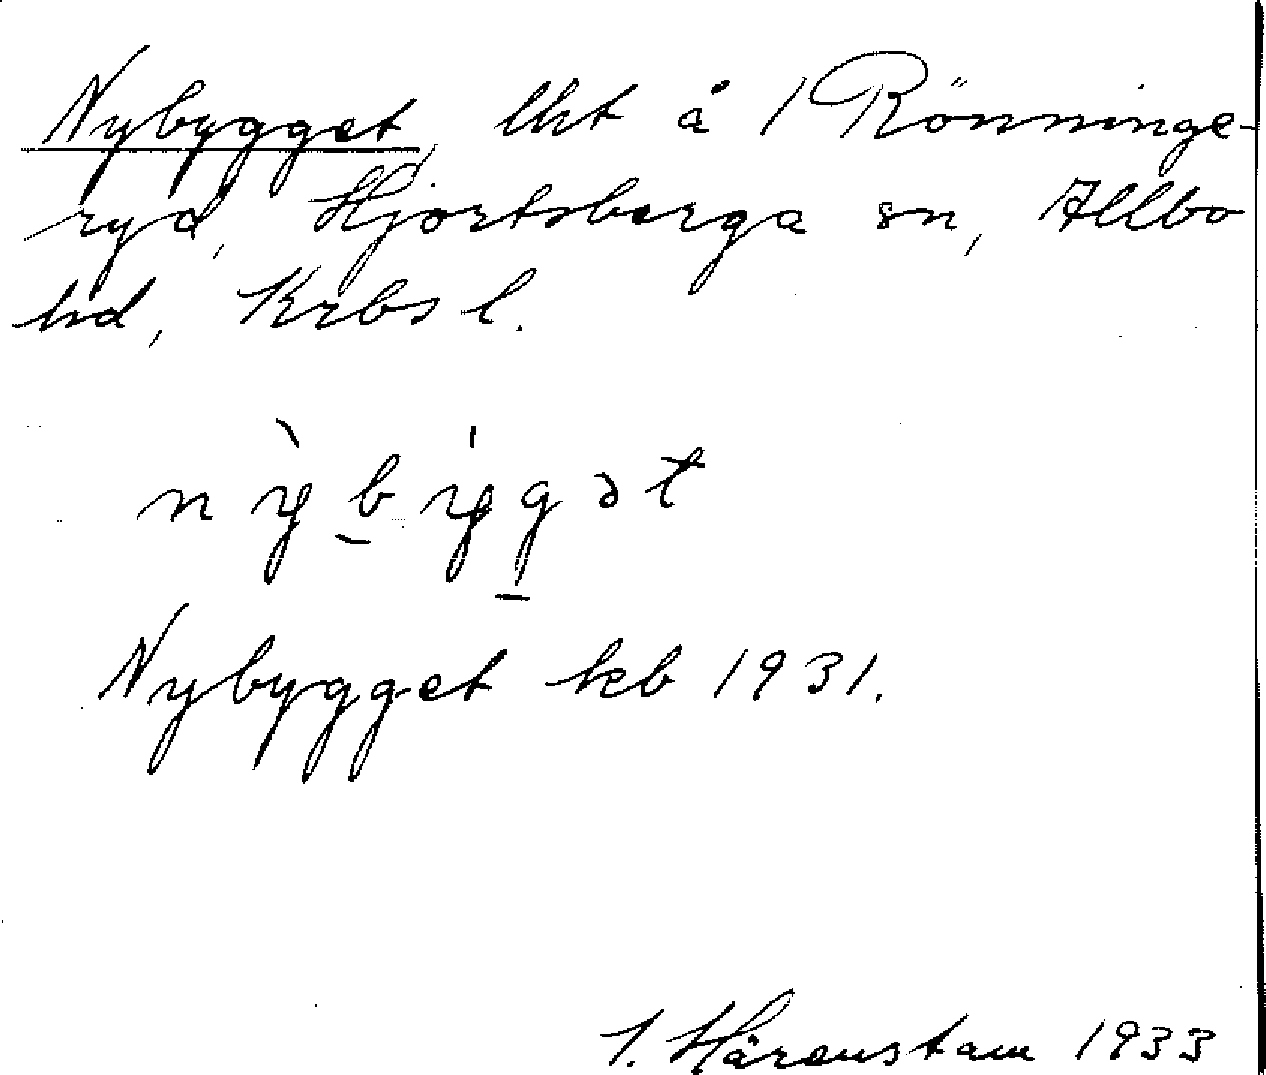 Nybygget, lht å 1 Rönninge-
ryd, Hjortsberga sn, Allbo
hd, Krbs l.
nỳ̱býg̱ət
Nybygget kb 1931.
Härenstam 1933